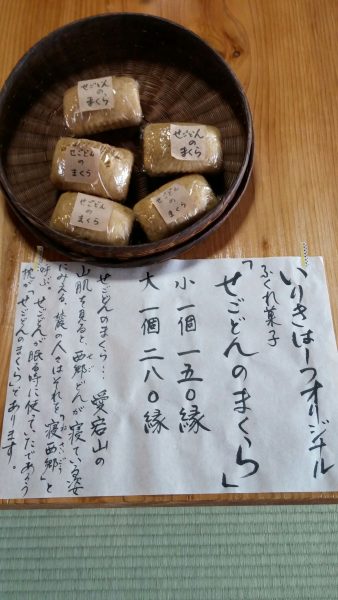 せごどん
の
まくら
せごどん
の
まくら
せごどん
の
まくら
せごどん
の
まくら
せごどん
の
まくら
いりきはーつオリジナル
ふくれ菓子
「せごどんのまくら」
小 一個 一五〇縁
大 一個 二八〇縁
せごどんのまくら… 愛宕山の
山肌を見ると、西郷どんが寝ている姿
にみえる、麓の人々はそれを、寝西郷、と
呼ぶ、せごどんが眠る時に使っていたであろう
枕が「せごどんのまくら」とあります。